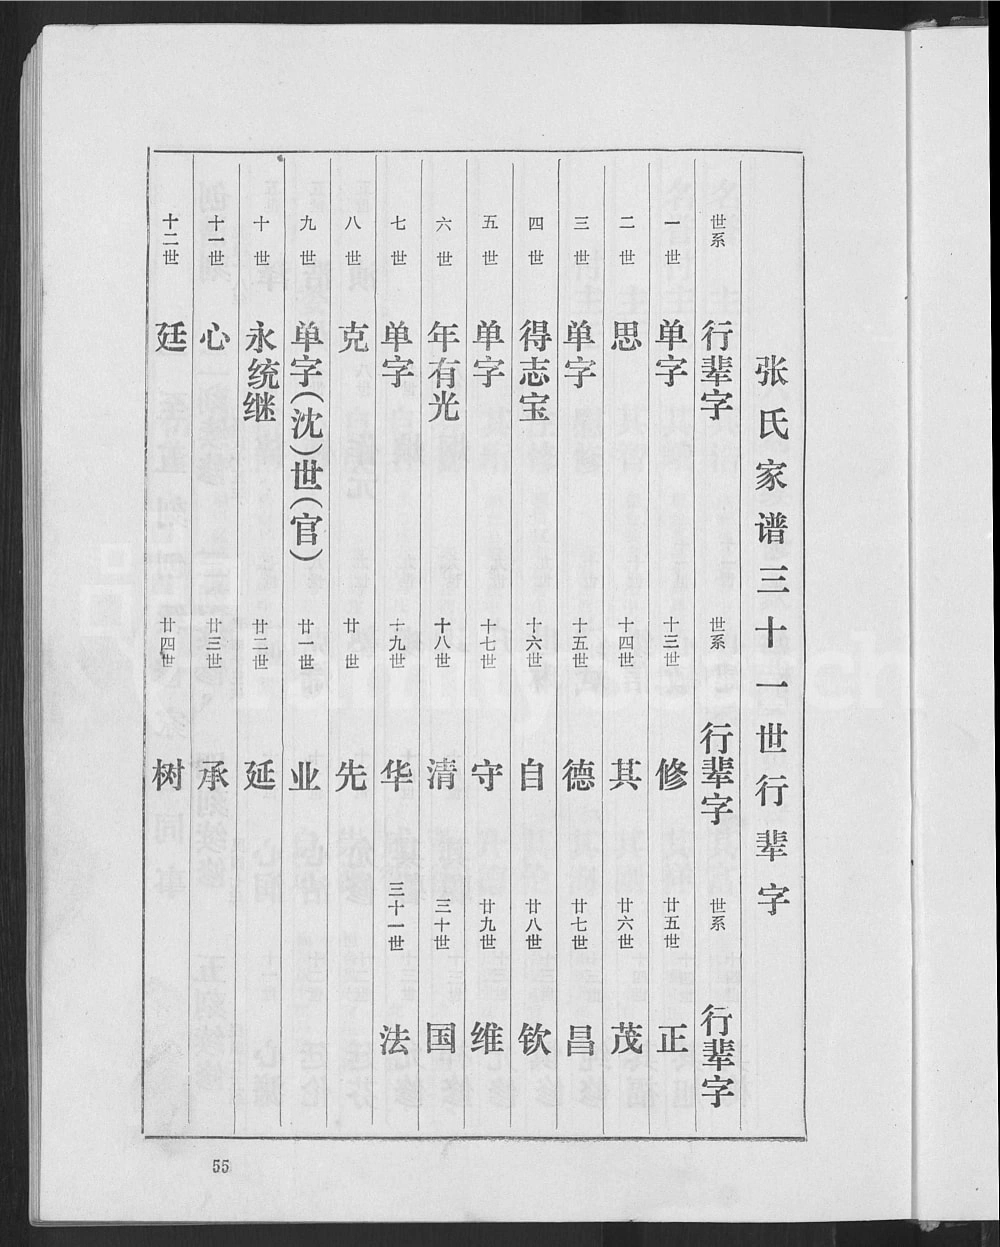 张氏家谱三十一世行辈字
世系 行辈字 世系 行辈字 世系 行辈字
一世 单字 十三世 修 廿五世 正
二世 思 十四世 其 廿六世 茂
三世 单字 十五世 德 廿七世 昌
四世 得志宝 十六世 自 廿八世 钦
五世 单字 十七世 守 廿九世 维
六世 年有光 十八世 清 三十世 国
七世 单字 十九世 华 三十一世 法
八世 克 廿世 先
九世 单字(沈)世(官) 廿一世 业
十世 永统继 廿二世 延
十一世 心 廿三世 承
十二世 廷 廿四世 树
55